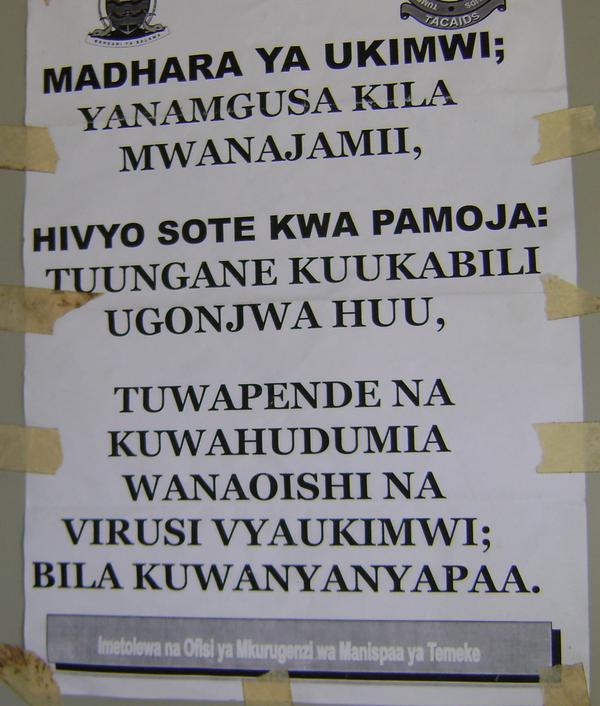 TACAIDS
MADHARA YA UKIMWI;
YANAMGUSA KILA
MWANAJAMII,
HIVYO SOTE KWA PAMOJA:
TUUNGANE KUUKABILI
UGONJWA HUU,
TUWAPENDE NA
KUWAHUDUMIA
WANAOISHI NA
VIRUSI VYAUKIMWI;
BILA KUWANYANYAPAA.
Imetolewa na Ofisi ya Mkurugenzi wa Manispaa ya Temeke